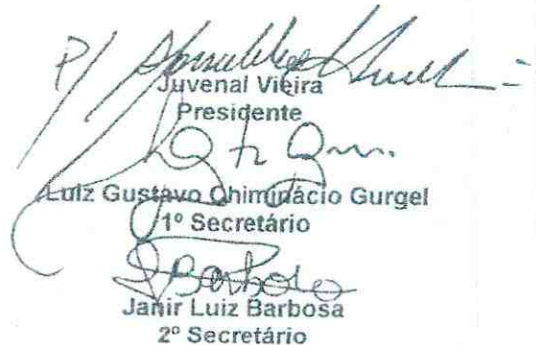 P/
Juvenal Vieira
Presidente
Luiz Gustavo Chiminácio Gurgel
1º Secretário
JBarbosa
Janir Luiz Barbosa
2º Secretário